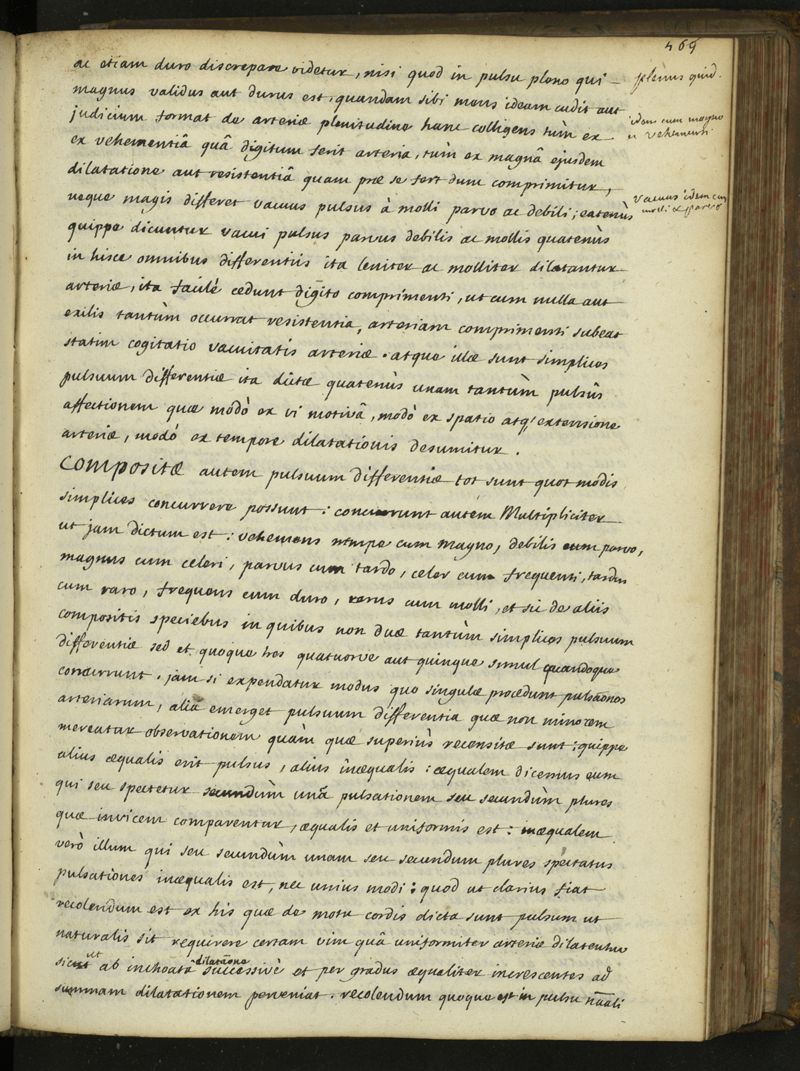 469
ac etiam duro discrepare videtur, nisi quod in pulsu pleno qui
magnus validus aut durus est, quandam sibi mens ideam cudit aut
judicium format de arteriæ plenitudine hanc colligens tùm ex
ex vehementiâ quâ digitum ferit arteria, tùm ex magnâ ejusdem
dilatatione aut resistentiâ quam præ se fert dum comprimitur,
neque magis differet vacuus pulsus à molli parvo ac debili; eatenùs
quippe dicuntur vacui pulsus parvus debilis ac mollis quatenùs
in hisce omnibus differentiis ita leniter ac molliter dilatantur
arteriæ, ita facilè cedunt digito comprimenti, ut cum nulla aut
exilis tantùm occurrat resistentia, arteriam comprimenti subeat
statim cogitatio vacuitatis arteriæ. atque illæ sunt simplices
pulsuum differentiæ ita dictæ quatenùs unam tantùm pulsûs
affectionem quæ modò ex vi motivâ, modò ex spatio atq; extensione
arteriæ, modò ex tempore dilatationis desumitur.
Compositæ autem pulsuum differentiæ tot sunt quot modis
simplices concurrere possunt: concurrunt autem Multipliciter
ut jam dictum est: vehemens nempe cum magno, debilis cum parvo,
magnus cum celeri, parvus cum tardo, celer cum frequenti, tardus
cum raro, frequens cum duro, rarus cum molli, et sic de aliis
compositis speciebus in quibus non duæ tantùm simplices pulsuum
differentiæ sed et quoque tres quatuorve aut quinque simul quandoque
concurrunt. jam si expendatur modus quo singulæ procedunt pulsaones
arteriarum, alia emerget pulsuum differentia quæ non minorem
mereatur observationem quàm quæ superiùs recensitæ sunt: quippe
alius æqualis erit pulsus, alius inæqualis: æqualem dicemus eum
qui seu spectetur secundùm unâ pulsationem seu secundùm plures
quæ invicem comparentur, æqualis et uniformis est: inæqualem
verò illum qui seu secundùm unam seu secundum plures spectatus
pulsationes inæqualis est, nec unius modi: quod ut clarius fiat
recolendum est ex his quæ de motu cordis dicta sunt pulsum ut
naturalis sit requirere certam vim quâ uniformiter arteriæ dilatentur
ut ab inchoatâ dilataone successivè et per gradus æqualiter increscentes ad
summam dilatationem perveniat. recolendum quoque est in pulsu nāāli
plenus quid.
idem cum magno
et vehementi
vacuus idem cum
molli et parvo